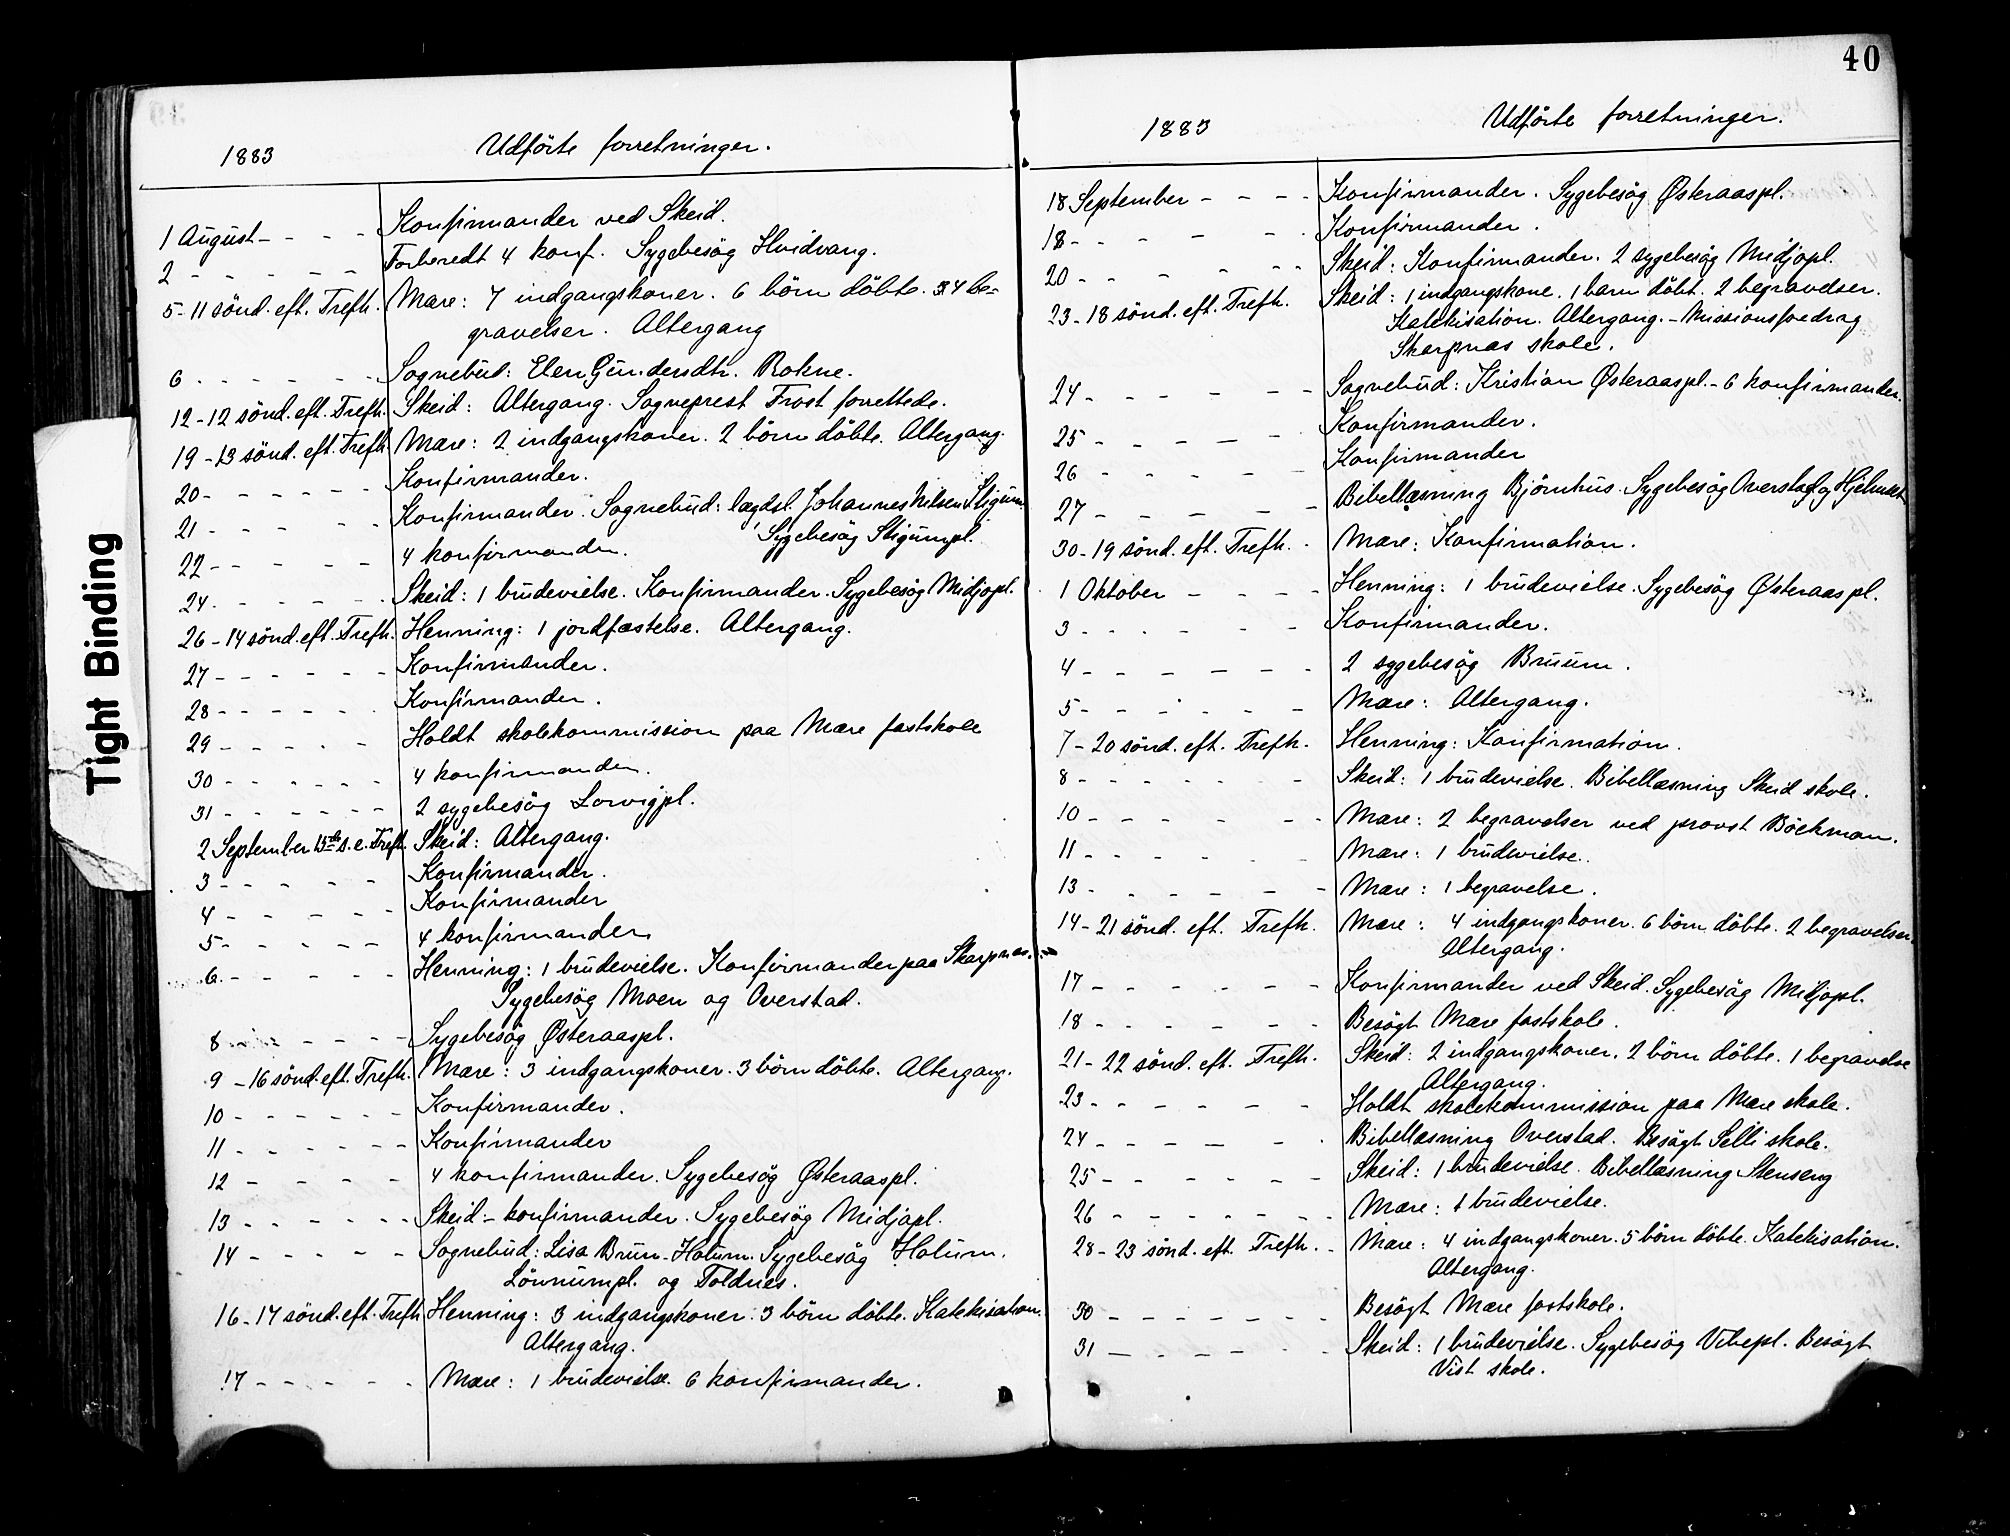 40
1883 Udførte forretninger.
1 August - - - - Konfirmander ved Skeid.
2 - - - - - - Forberedt 4 konf. Sygebesøg Hvidvang.
5 - 11 sönd. eft. Trefh. Mære: 7 indgangskoner. 6 börn döbte. 4 be-
gravelser. Altergang
6 - - - - - - Sognebud: Elen Gundersdtr. Rokne.
12 - 12 sönd. eft. Trefh. Skeid: Altergang. Sogneprest Frost forrettede.
19 - 13 sönd. eft. Trefh. Mære: 2 indgangskoner. 2 börn döbte. Altergang.
20 - - - - - - Konfirmander.
21 - - - - - Konfirmander. Sognebud: lægdsl. Johannes Nilsen Stigum.
Sygebesög Stigumpl.
22 - - - - - 4 konfirmander.
24 - - - - - Skeid: 1 brudevielse. Konfirmander. Sygebesög Midjopl.
26 - 14 sönd. eft. Trefh. Henning: 1 jordfæstelse. Altergang.
27 - - - - - - Konfirmander.
28 - - - - - Konfirmander.
29 - - - - - Holdt skolekommission paa Mære fastskole
30 - - - - - - 4 konfirmander.
31 - - - - - - 2 sygebesög Lorvigpl.
2 September 15de s. e. Trefh. Skeid: Altergang.
3 - - - - - Konfirmander.
4 - - - - - Konfirmander
5 - - - - - 4 konfirmander
6 - - - - - Henning: 1 brudevielse. Konfirmander paa Skarpnes.
Sygebesög Moen og Overstad.
8 - - - - - Sygebesög Østeraaspl.
9 - 16 sönd. eft. Trefh. Mære: 3 indgangskoner. 3 börn döbte. Altergang.
10 - - - - - - Konfirmander.
11 - - - - - - Konfirmander
12 - - - - - 4 konfirmander. Sygebesög Østeraaspl.
13 - - - - - - Skeid - konfirmander. Sygebesög Midjopl.
14 - - - - - Sognebud: Lisa Brun - Holum. Sygebesög Holum.
Lönnumpl. og Toldnes.
16 - 17 sönd. eft. Trefh. Henning: 3 indgangskoner. 3 börn döbte. Katekisation.
Altergang.
17 - - - - - Mære: 1 brudevielse. 6 konfirmander.
1883 Udførte forretninger.
18 September - - - - Konfirmander. Sygebesög Østeraaspl.
18 - - - - - Konfirmander.
20 - - - - - - Skeid: Konfirmander. 2 sygebesög Midjopl.
23 - 18 sönd. eft. Trefh. Skeid: 1 indgangskone. 1 barn döbt. 2 begravelser.
Katekisation. Altergang. - Missionsforedrag
Skarpnas skole.
24 - - - - - - Sognebud: Kristian Østeraaspl. - 6 konfirmander.
25 - - - - - Konfirmander.
26 - - - - - Konfirmander
27 - - - - - - Bibellæsning Bjömhus. Sygebesög Overstad og Hjelmset
30 - 19 sönd. eft. Trefh. Mære: Konfirmation.
1 Oktober - - - - Henning: 1 brudevielse. Sygebesög Østeraaspl.
3 - - - - - - Konfirmander.
4 - - - - - - 2 sygebesög Bruum.
5 - - - - - - Mære: Altergang.
7 - 20 sönd. eft. Trefh. Henning: Konfirmation.
8 - - - - - - Skeid: 1 brudevielse. Bibellæsning Skeid skole.
10 - - - - - - Mære: 2 begravelser ved provst Böckman.
11 - - - - - - Mære: 1 brudevielse.
13 - - - - - - Mære: 1 begravelse.
14 - 21 sönd. eft. Trefh. Mære: 4 indgangskoner. 6 börn döbte. 2 begravelser.
Altergang.
17 - - - - - - Konfirmander ved Skeid. Sygebesög Midjopl.
18 - - - - - - Besögt Mære fastskole.
21 - 22 sönd. eft. Trefh. Skeid: 2 indgangskoner. 2 börn döbte. 1 begravelse
Altergang.
23 - - - - - - Holdt skolekommission paa Mære skole.
24 - - - - - Bibellæsning Overstad. Besögt Selli skole.
25 - - - - - - Skeid: 1 brudevielse. Bibellæsning Stenseng
26 - - - - - - Mære: 1 brudevielse.
28 - 23 sönd. eft. Trefh. Mære: 4 indgangskoner. 5 börn döbte. Katekisation.
Altergang.
30 - - - - - - Besögt Mære fastskole.
31 - - - - - - Skeid: 1 brudevielse. Sygebesög Vibepl. Besögt
Vist skole.
Tight Binding